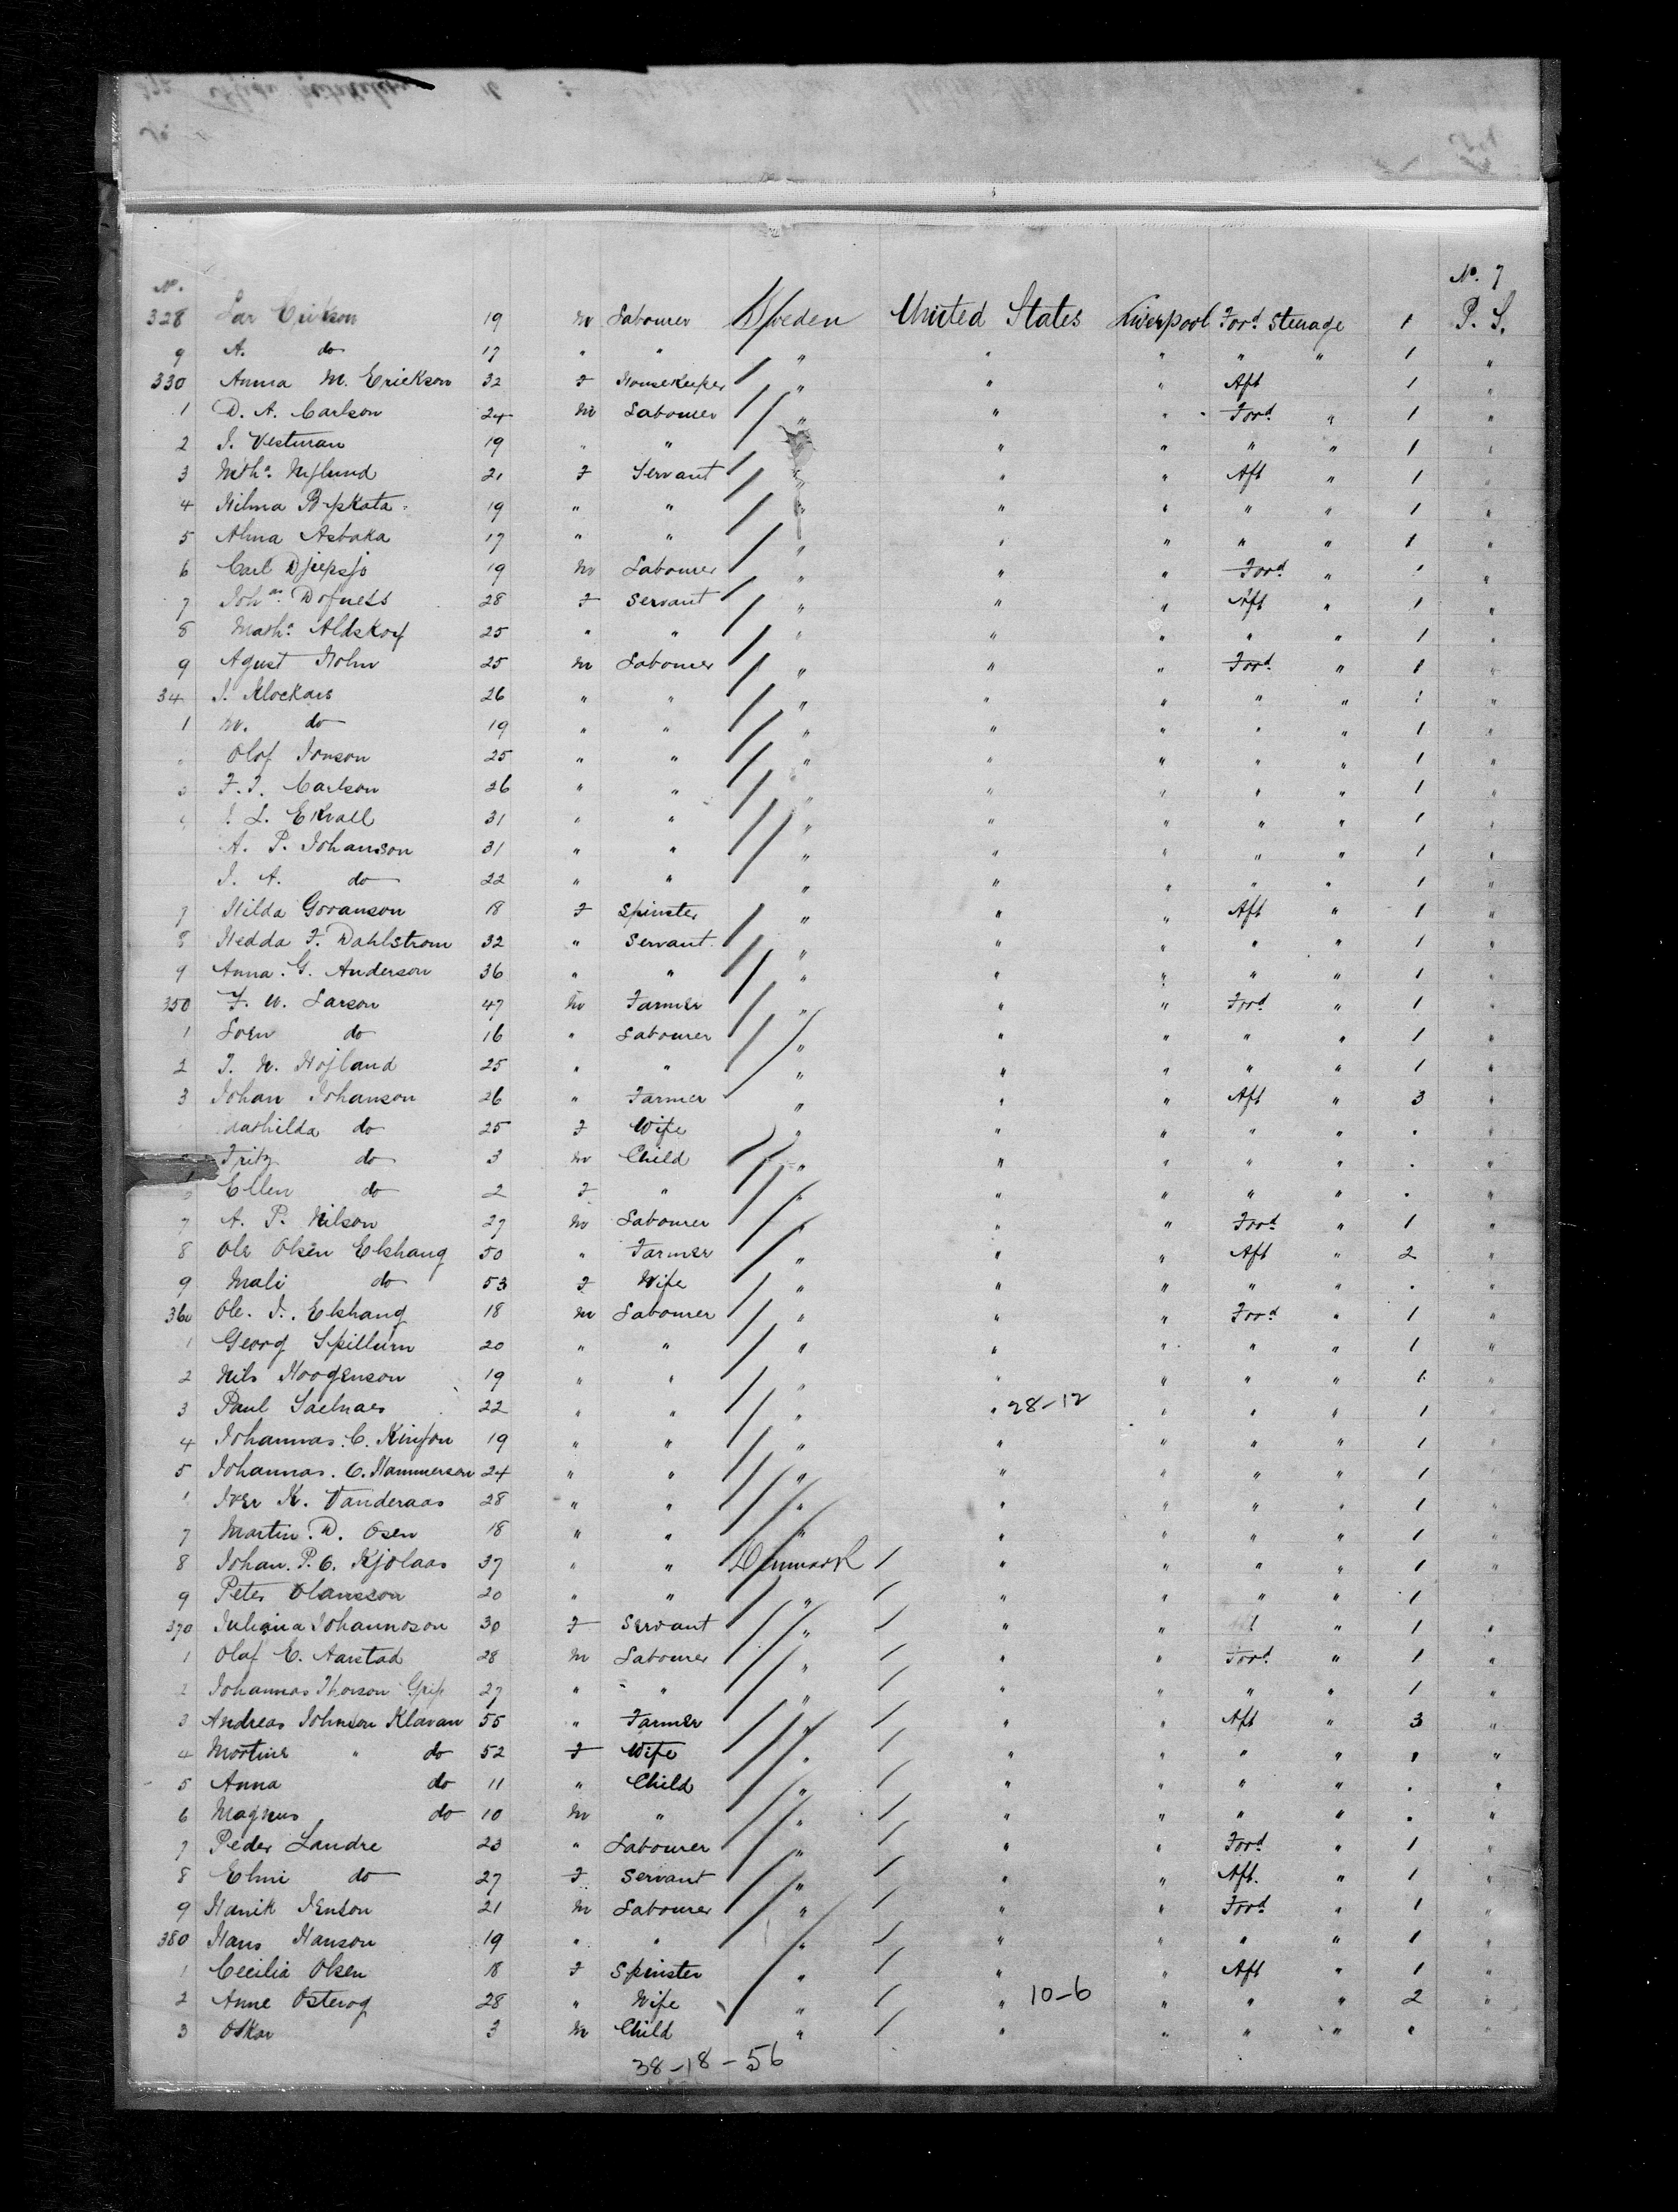 No. No. 7
328 Lar Erikson 19 m Labourer Sweden United States Liverpool Ford. Steerage 1 P. S.
9 A. do 17 " " " " " " " 1 "
330 Anna M. Erickson 32 F Housekeeper " " " Aft 1 "
1 D. A. Carlson 24 m Labourer " " " Ford. " 1 "
2 J. Vestman 19 " " " " " " 1 "
3 Matha. Nylund 21 F Servant " " " Aft " 1 "
4 Hilma 19 " " " " " " " 1 "
5 Alma Asbaka 17 " " " " " " " 1 "
6 Carl 19 m Labourer " " " Ford. " 1 "
7 Johan. Dofness 28 F Servant " " " Aft " 1 "
8 Matha. 25 " " " " " " " 1 "
9 Agust Holm 25 m Labourer " " " Ford. " 1 "
34 J. Klockars 26 " " " " " " " 1 "
1 W. do 19 " " " " " " " 1 "
Olof Jonson 25 " " " " " " " 1 "
3 F. J. Carlson 26 " " " " " " " 1 "
J. L. Ekvall 31 " " " " " " " 1 "
A. P. Johanson 31 " " " " " " " 1 "
J. A. do 22 " " " " " " " 1 "
7 Hilda Goranson 18 F Spinster " " " Aft " 1 "
8 Hedda F. Dahlstrom 32 " Servant " " " " " 1 "
9 Anna. G. Anderson 36 " " " " " " " 1 "
350 F. W. Larson 47 m Farmer " " " Ford " 1 "
1 Soren do 16 " Labourer " " " " " 1 "
2 J. N. Hojland 25 " " " " " " " 1 "
3 Johan Johanson 26 " Farmer " " " Aft " 3 "
Mathilda do 25 F Wife " " " " " . "
Fritz do 3 m Child " " " " " . "
Ellen do 2 F " " " " " " . "
7 A. P. Nilson 27 m Labourer " " " Ford " 1 "
8 Ole Olsen Ekhaug 50 " Farmer " " " Aft " 2 "
9 Mali do 53 F Wife " " " " " . "
360 Ole. J. Ekhaug 18 m Labourer " " " Ford " 1 "
1 Georg Spillum 20 " " " " " " " 1 "
2 Nils 19 " " " " " " " 1 "
3 Paul Saelnaes 22 " " " " 28-12 " " " 1 "
4 Johannas. C. 19 " " " " " " " 1 "
5 Johannas. C. Hammerson 24 " " " " " " " 1
Iver K. Vanderaas 28 " " " " " " " 1 "
7 Martin. D. Osen 18 " " " " " " " 1 "
8 Johan. P. C. Kjolaas 37 " " Denmark / " " " " 1 "
9 Peter Olansson 20 " " " / " " " " 1
370 Juliana Johannoson 30 F Servant " / " " " 1 "
1 Olaf E. Aarstad 28 m Labourer " / " " Ford. " 1 "
2 Johannas Thorson Grip 27 " " " / " " " " 1 "
3 Andreas Johnson Klavan 55 " Farmer " / " " Aft " 3 "
4 Mortine " do 52 F Wife " / " " " " . "
5 Anna do 11 " Child " / " " " " . "
6 Magnus do 10 m " " / " " " " . "
7 Peder Landre 23 " Labourer " / " " Ford " 1 "
8 Elmi do 27 F Servant " / " " Aft. " 1 "
9 Hanik Jenson 21 m Labourer " / " " Ford " 1 "
380 Hans Hanson 19 " " " / " " " " 1 "
1 Cecilia Olsen 18 F Spinster " / " " Aft " 1 "
2 Anne Osterog 28 " Wife " / " 10-6 " " " 2 "
3 Oskar 3 m Child " / " " " " .
38-18-56